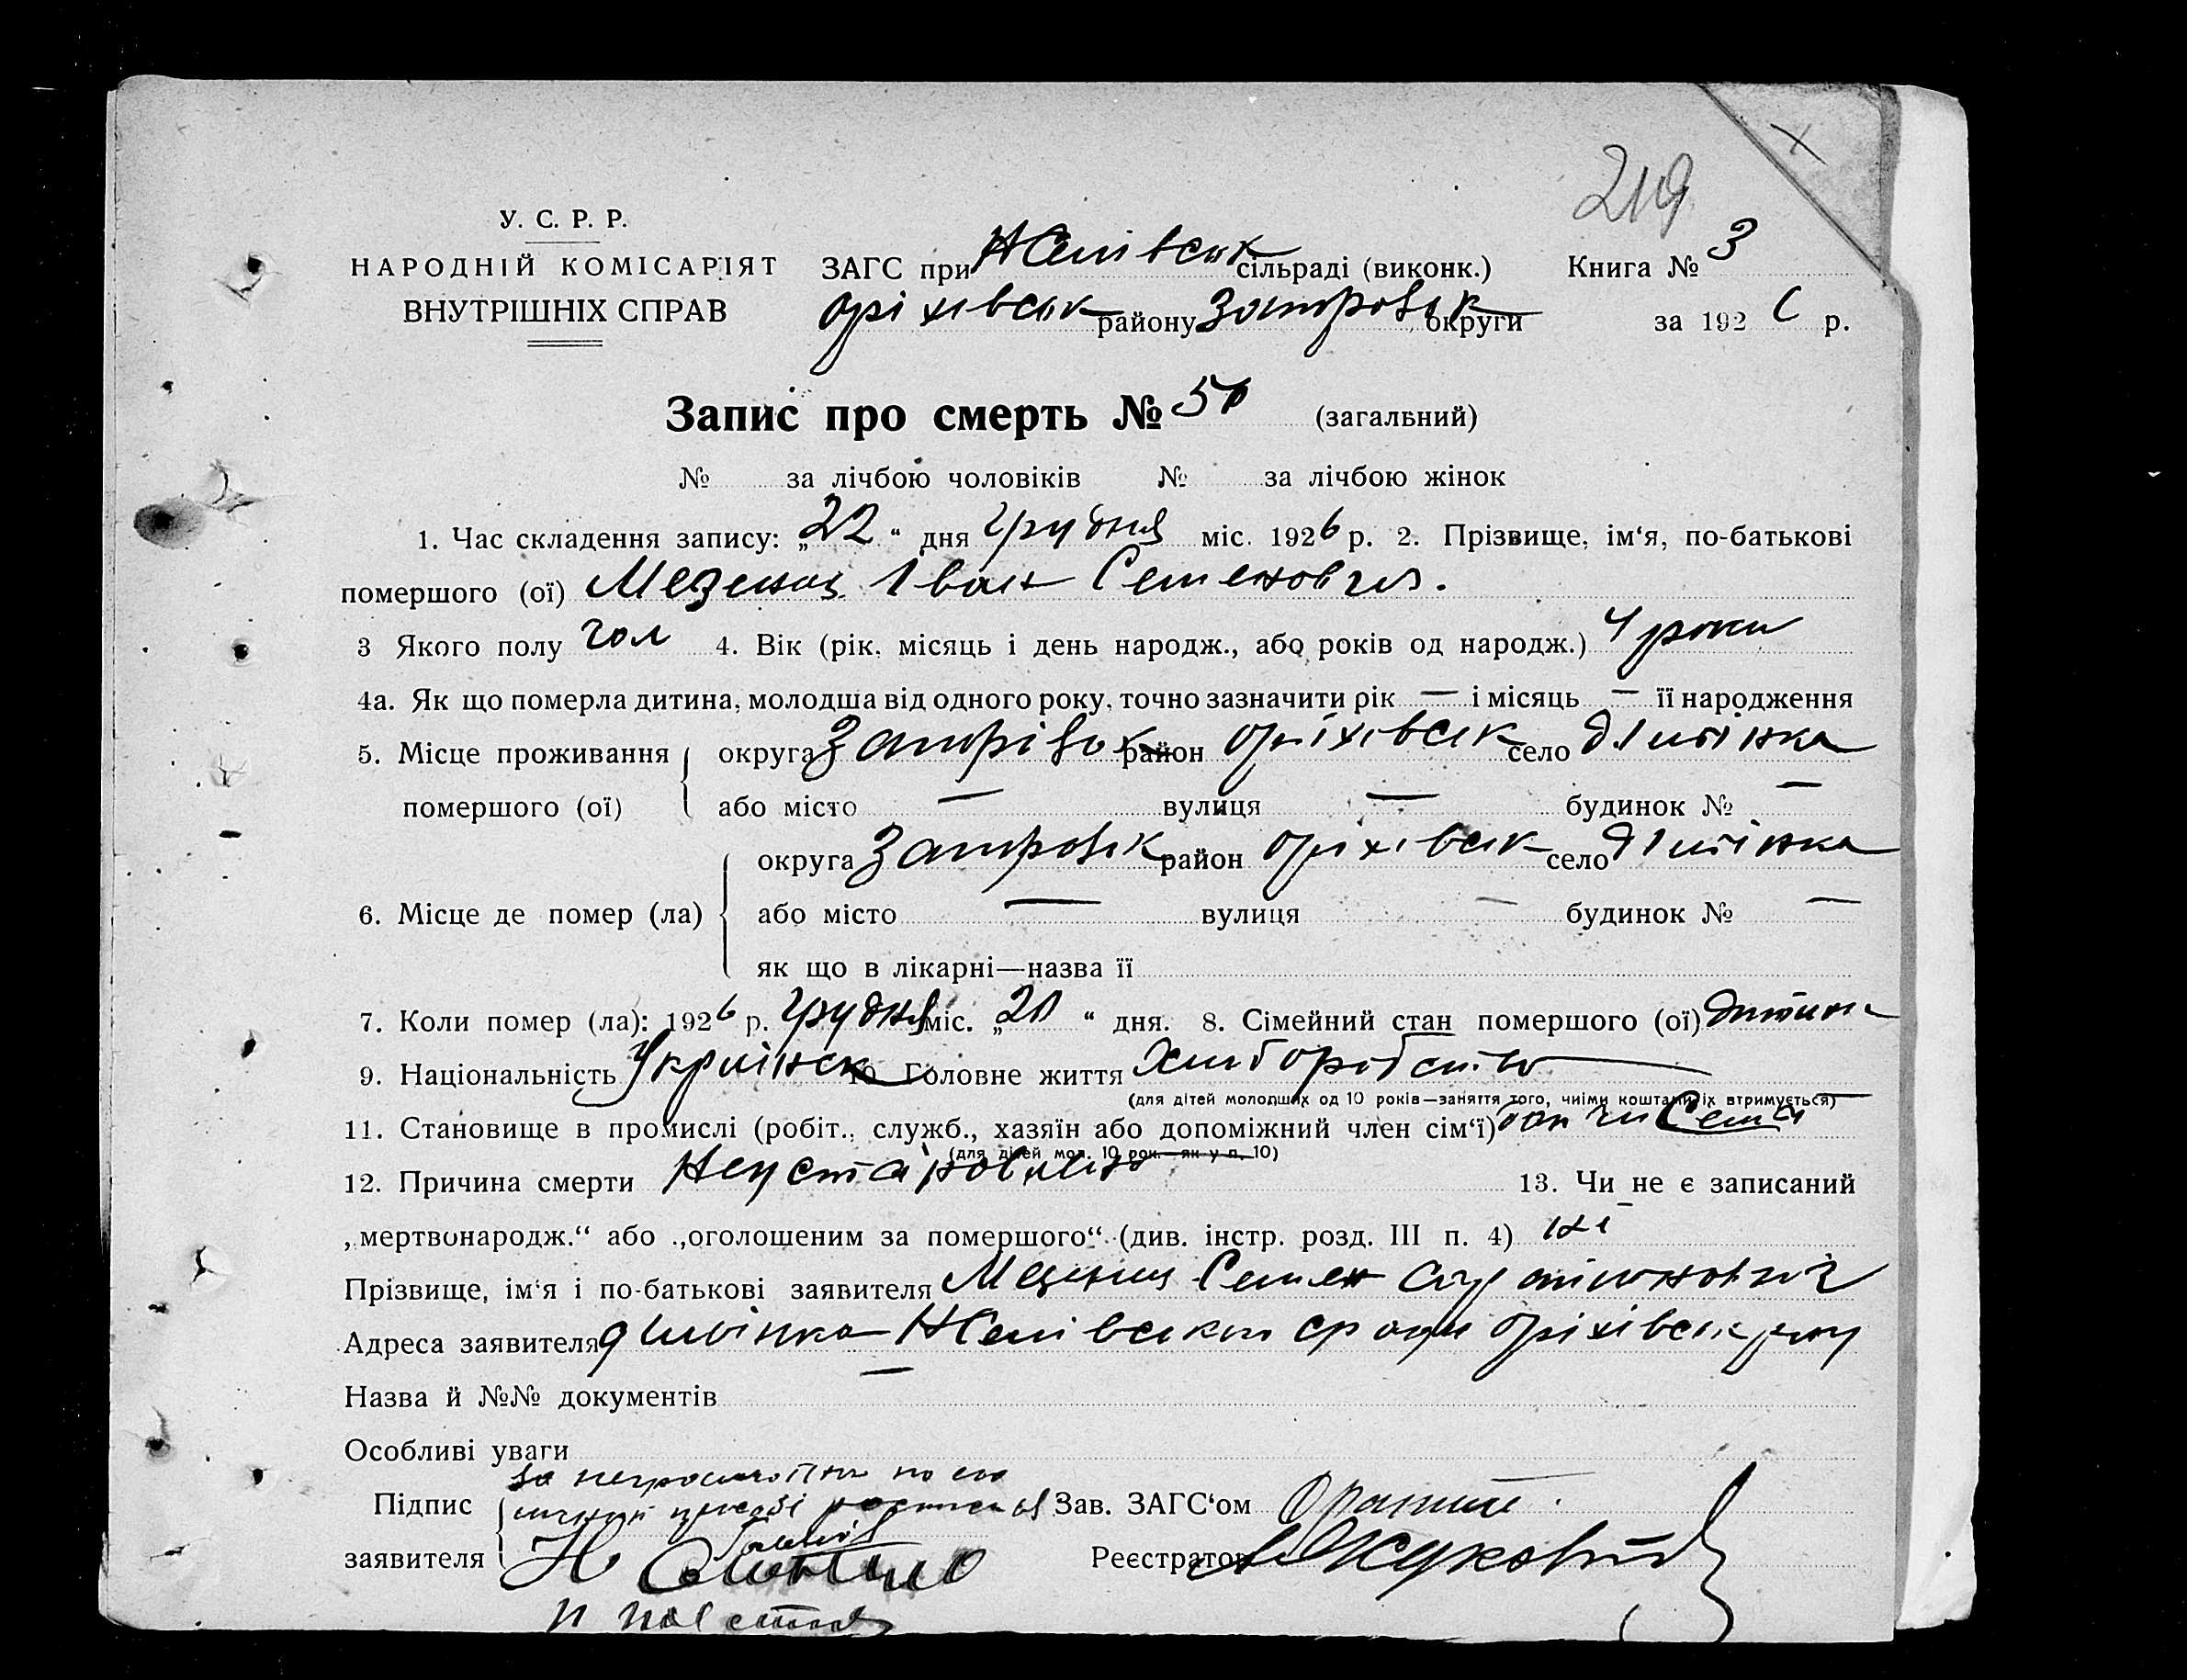 219
У. С. Р. Р.
НАРОДНІЙ КОМІСАРІЯТ
ВНУТРІШНІХ СПРАВ
ЗАГС при сільраді (виконк.) Книга № 3
оріхівськ району Запоріз округи за 1926 р.
Запис про смерть № 50 (загальний)
№ за лічбою чоловіків № за лічбою жінок
1. Час складення запису: „22“ дня грудня міс. 1926 р. 2. Прізвище, ім‘я, по-батькові
помершого (ої) Мезенец Іван Семенович.
3 Якого полу чол 4. Вік (рік, місяць і день народж., або років од народж.) 4 роки
4а. Як що померла дитина, молодша від одного року, точно зазначити рік — і місяць — її народження
5. Місце проживання помершого (ої) округа район оріхівськ село
або місто — вулиця — будинок № —
6. Місце де помер (ла) округа район оріхівськ село
або місто — вулиця — будинок № —
як що в лікарні—назва її
7. Коли помер (ла): 1926 р. грудня міс. „20“ дня. 8. Сімейний стан помершого (ої) дитина
9. Національність Українск 10 Головне життя Хліборобство
(для дітей молодших од 10 років—заняття того, чиїми коштами їх втримується)
11. Становище в промислі (робіт., служб., хазяїн або допоміжний член сім‘ї) Семї
(для дітей мол. 10 рок.—як у п. 10)
12. Причина смерти Неустановлено 13. Чи не є записаний
„мертвонародж.“ або „оголошеним за помершого“ (див. інстр. розд. III п. 4) ні
Прізвище, ім‘я і по-батькові заявителя Мезенец Семен
Адреса заявителя оріхівськ
Назва й №№ документів —
Особливі уваги
Підпис заявителя за
Зав. ЗАГС‘ом
Реєстратор Жуковій